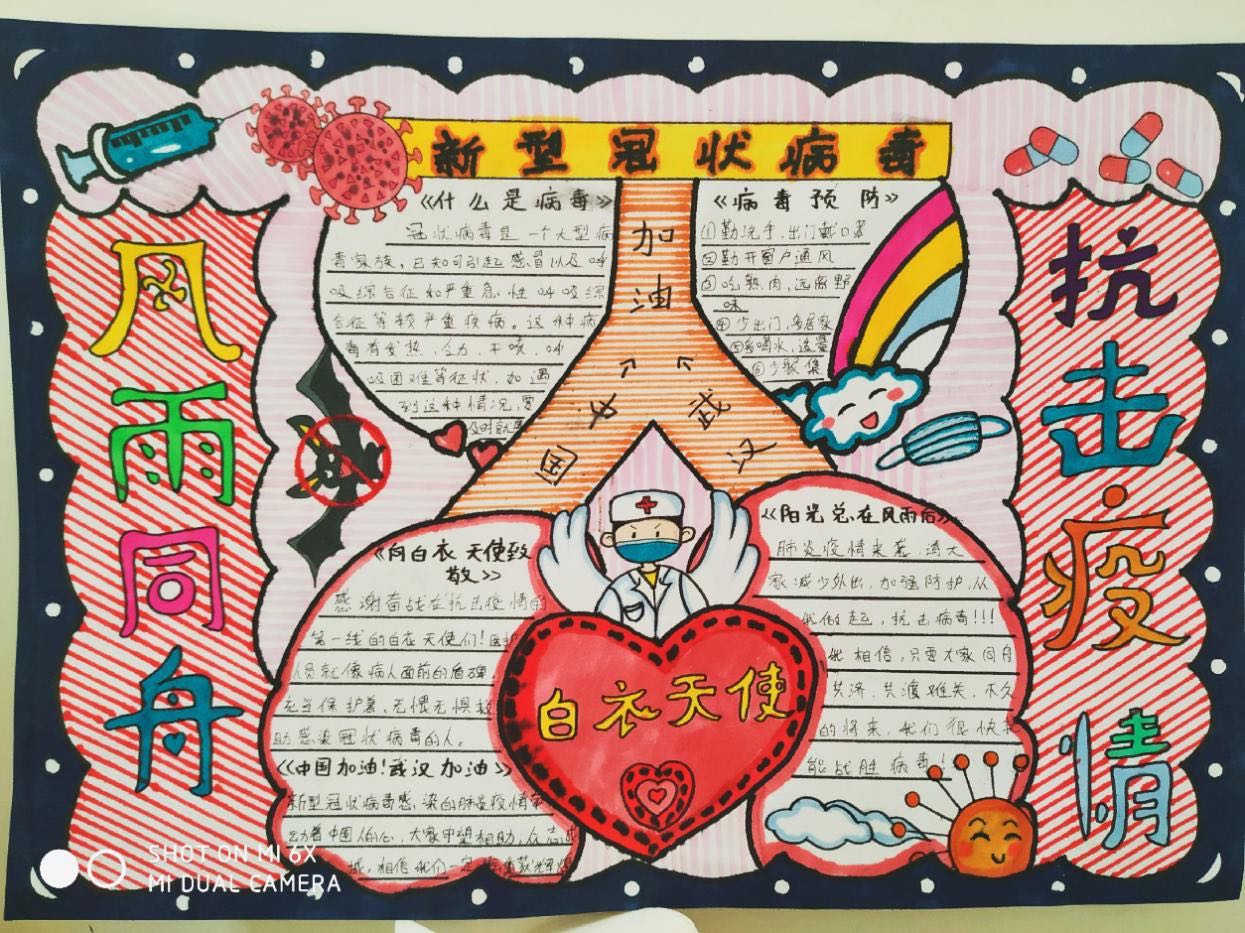 新型冠状病毒
风雨同舟
抗击疫情
《什么是病毒》
冠状病毒是一个大型病
毒家族，已知可引起感冒以及呼
吸综合征和严重急性呼吸综
合征等较严重疾病。这种病
毒有发热，乏力，干咳，呼
吸困难等症状，如遇
到这种情况，要
及时就
加油
中国
武汉
《病毒预防》
①勤洗手，出门戴口罩
②勤开窗户通风
③吃熟肉，远离野
味
④少出门，多居家
⑤多喝水，适量
⑥少聚集
《向白衣天使致
敬》
感谢奋战在抗击疫情的
第一线的白衣天使们！医护
人员就像病人面前的盾牌，
充当保护着，无畏无惧救
助感染冠状病毒的人。
《中国加油！武汉加油》
新型冠状病毒感染的肺炎疫情牵
动着中国人的心，大家守望相助，众志成
城，相信我们一定
白衣天使
《阳光总在风雨后》
肺炎疫情来袭，请大
家减少外出，加强防护，从
我做起，抗击病毒！！！
我相信，只要大家同舟
共济，共渡难关，不久
的将来，我们很快就
能战胜病毒！
SHOT ON MI 6X
MI DUAL CAMERA